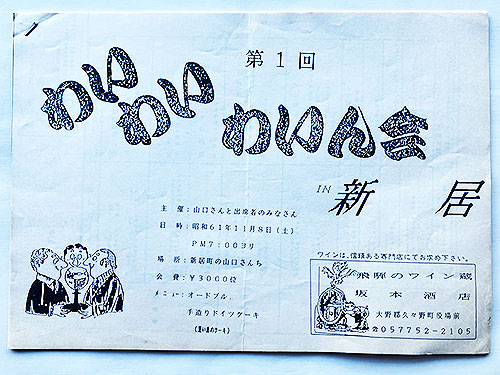 第1回
わいわい わいん会
IN 新居
主 催：山口さんと出席者のみなさん
日 時：昭和61年11月8日（土）
PM7：00ヨリ
場 所：新居町の山口さんち
会 費：￥3000位
メニュー：オードブル、
手造りドイツケーキ
ワインは、信頼ある専門店にてお求め下さい。
飛騨のワイン蔵
坂本酒店
大野郡久々野町役場前
☎057752-2105